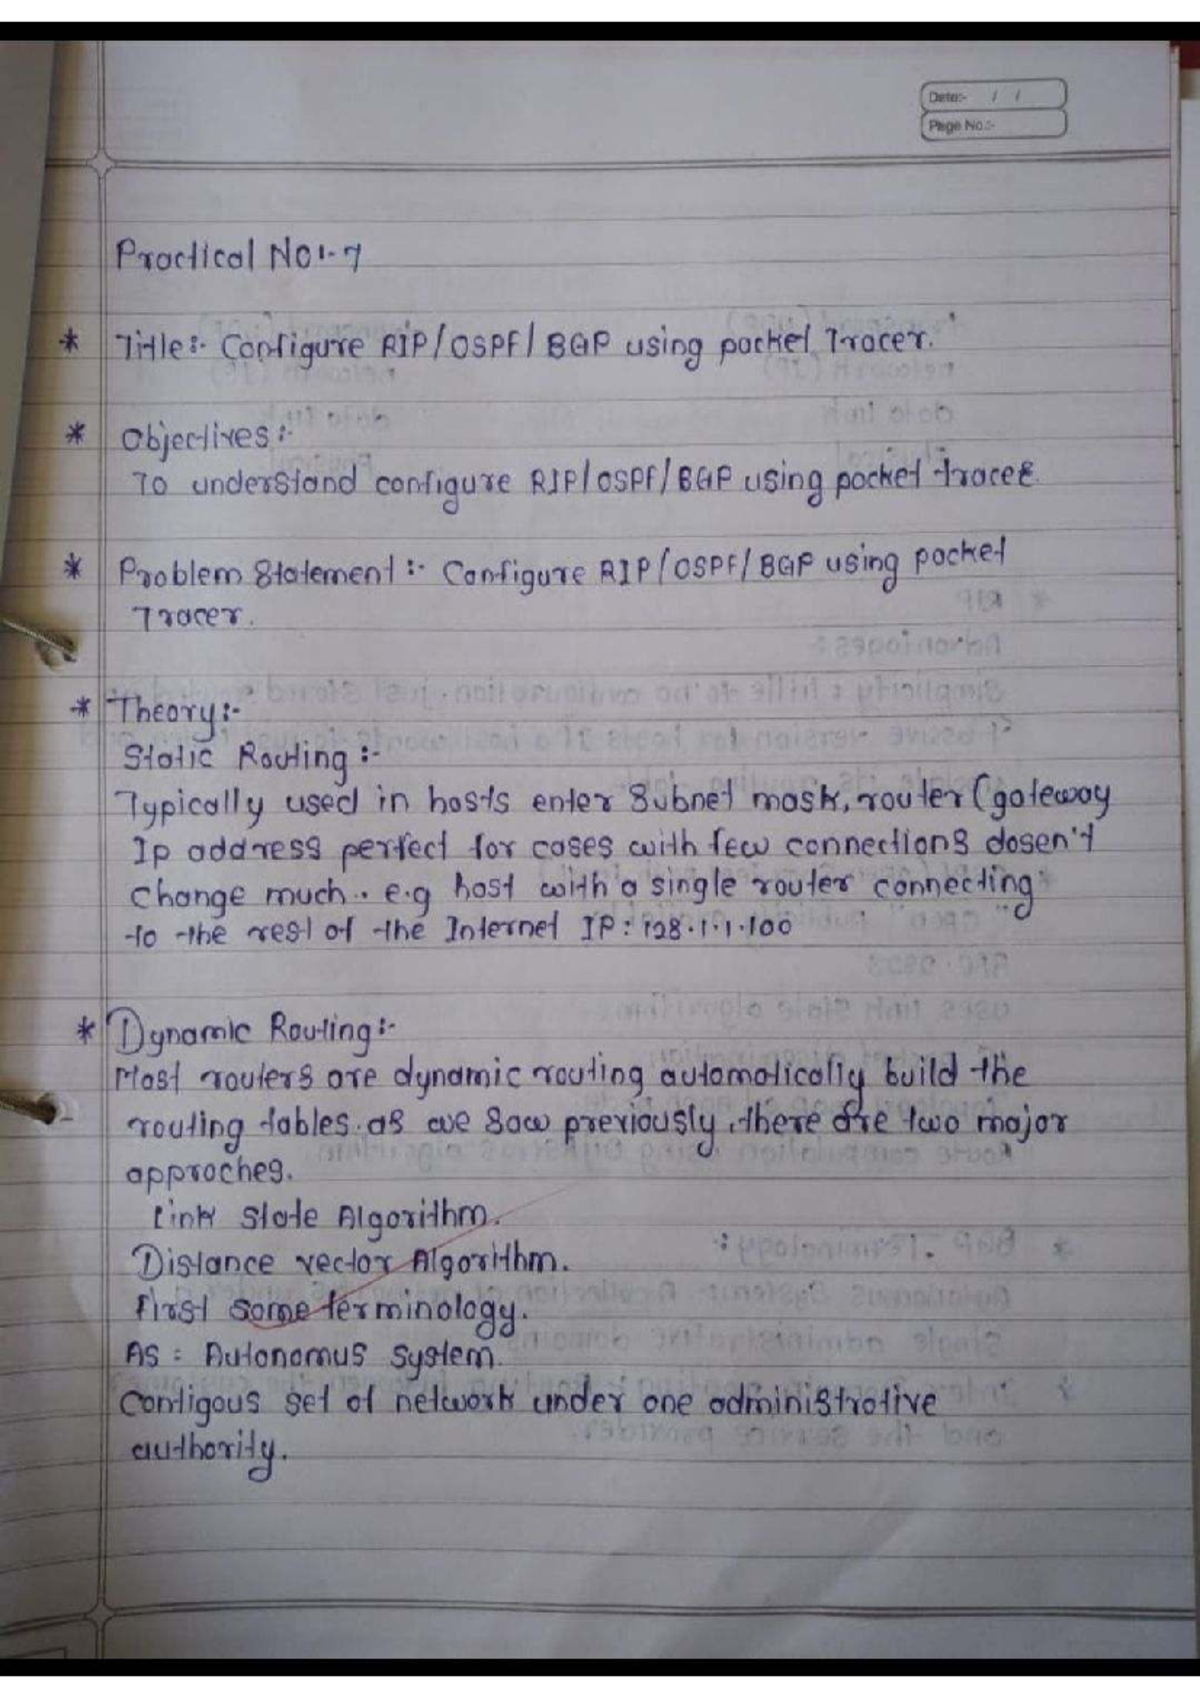 Date:- / /
Page No.:-
Practical No:- 7
* Title:- Configure RIP/OSPF/BGP using packet Tracer.
* Objectives:-
To understand configure RIP/OSPF/BGP using packet tracer.
* Problem Statement:- Configure RIP/OSPF/BGP using packet
Tracer.
* Theory:-
Static Routing:-
Typically used in hosts enter Subnet mask, router (gateway
Ip address perfect for cases with few connections dosen't
change much.. e.g host with a single router connecting
to the rest of the Internet IP: 128.1.1.100
* Dynamic Routing:-
Most routers are dynamic routing automatically build the
routing tables. as we saw previously, there are two major
approches.
Link State Algorithm.
Distance vector Algorithm.
First some terminology.
AS = Autonomus system.
Contigous set of network under one administrative
authority.